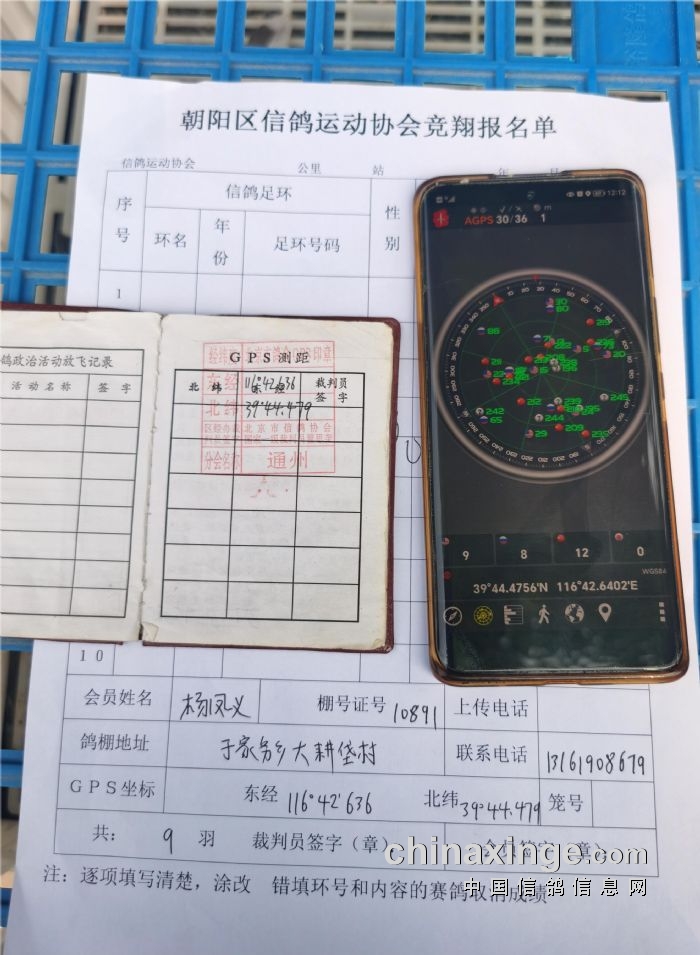 朝阳区信鸽运动协会竞翔报名单
信鸽运动协会 公里 站 年 月
序号 信鸽足环 性别
环名 年份 足环号码
1
鸽政治活动放飞记录
活动名称 签字
GPS测距
北纬 东经 裁判员签字
东经 116°42'636
北纬 39°44.479
分会名称 通州
12:12
AGPS 30/36 1
9 8 12 0
WGS84
39°44.4756'N 116°42.6402'E
10
会员姓名 杨凤义 棚号证号 10891 上传电话
鸽棚地址 于家务乡大耕垡村 联系电话 13161908679
GPS坐标 东经 116°42'636 北纬 39°44.479 笼号
共: 9 羽 裁判员签字(章) 会员签字(章)
注:逐项填写清楚,涂改 错填环号和内容的赛鸽取消成绩
chinaxinge.com
中国信鸽信息网